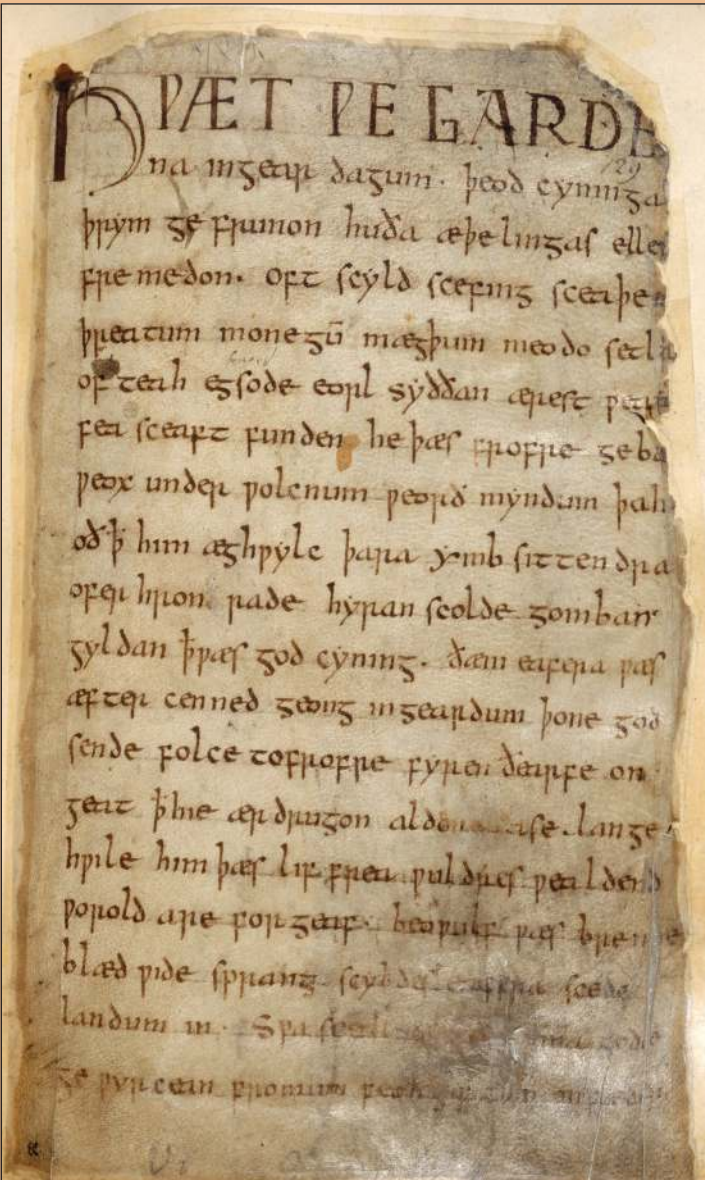 HǷÆT ǷE GARDE
na ingear dagum . þeod cyninga
þrym ge frunon huða æþelingas elle
fremedon . oft scyld scefing sceaþe
þreatum monegū mægþum meodo setla
of teah egsode eorl syððan ærest ƿear
fea sceaft funden he þæs frofre geba
ƿeox under ƿolcnum ƿeorð myndum þah
oð þ̄ him æghƿylc þara ymb sittendra
ofer hron rade hyran scolde gomban
gyldan þ̄ ƿæs god cyning . ðæm eafera ƿæs
æfter cenned geong ingeardum þone god
sende folce tofrofre fyren ðearfe on
geat þ̄ hie ær drugon aldor ase . lange
hƿile him þæs lif frea ƿuldres ƿealdend
ƿorold are forgeaf . beoƿulf ƿæs breme
blæd ƿide sprang scyldes eafera scede
landum in . Sƿa gode
ge ƿyrcean fromum
129